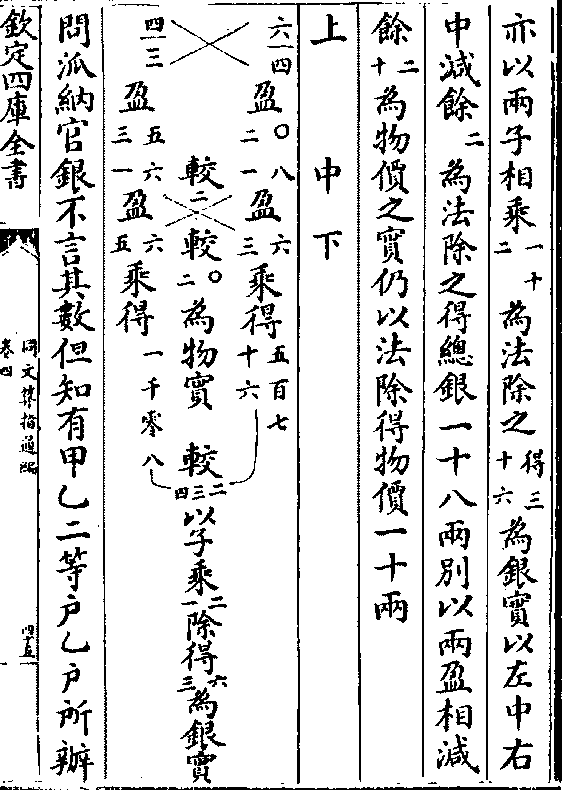 亦以兩子相乘一十二為法除之得三十六為銀實以左中右
中減餘二為法除之得總銀一十八兩別以兩盈相減
餘二十為物價之實仍以法除得物價一十兩
上　中　下
六一四　盈二〇　一八盈三六乘得五百七十六
較二　較二〇為物實　較四三二以子乘一二除得三六為銀實
四三　盈三五　一六盈五六乘得一千零八
問派納官銀不言其數但知有甲乙二等戶乙戶所辦
欽定四庫全書
同文算指通編
卷四
四五